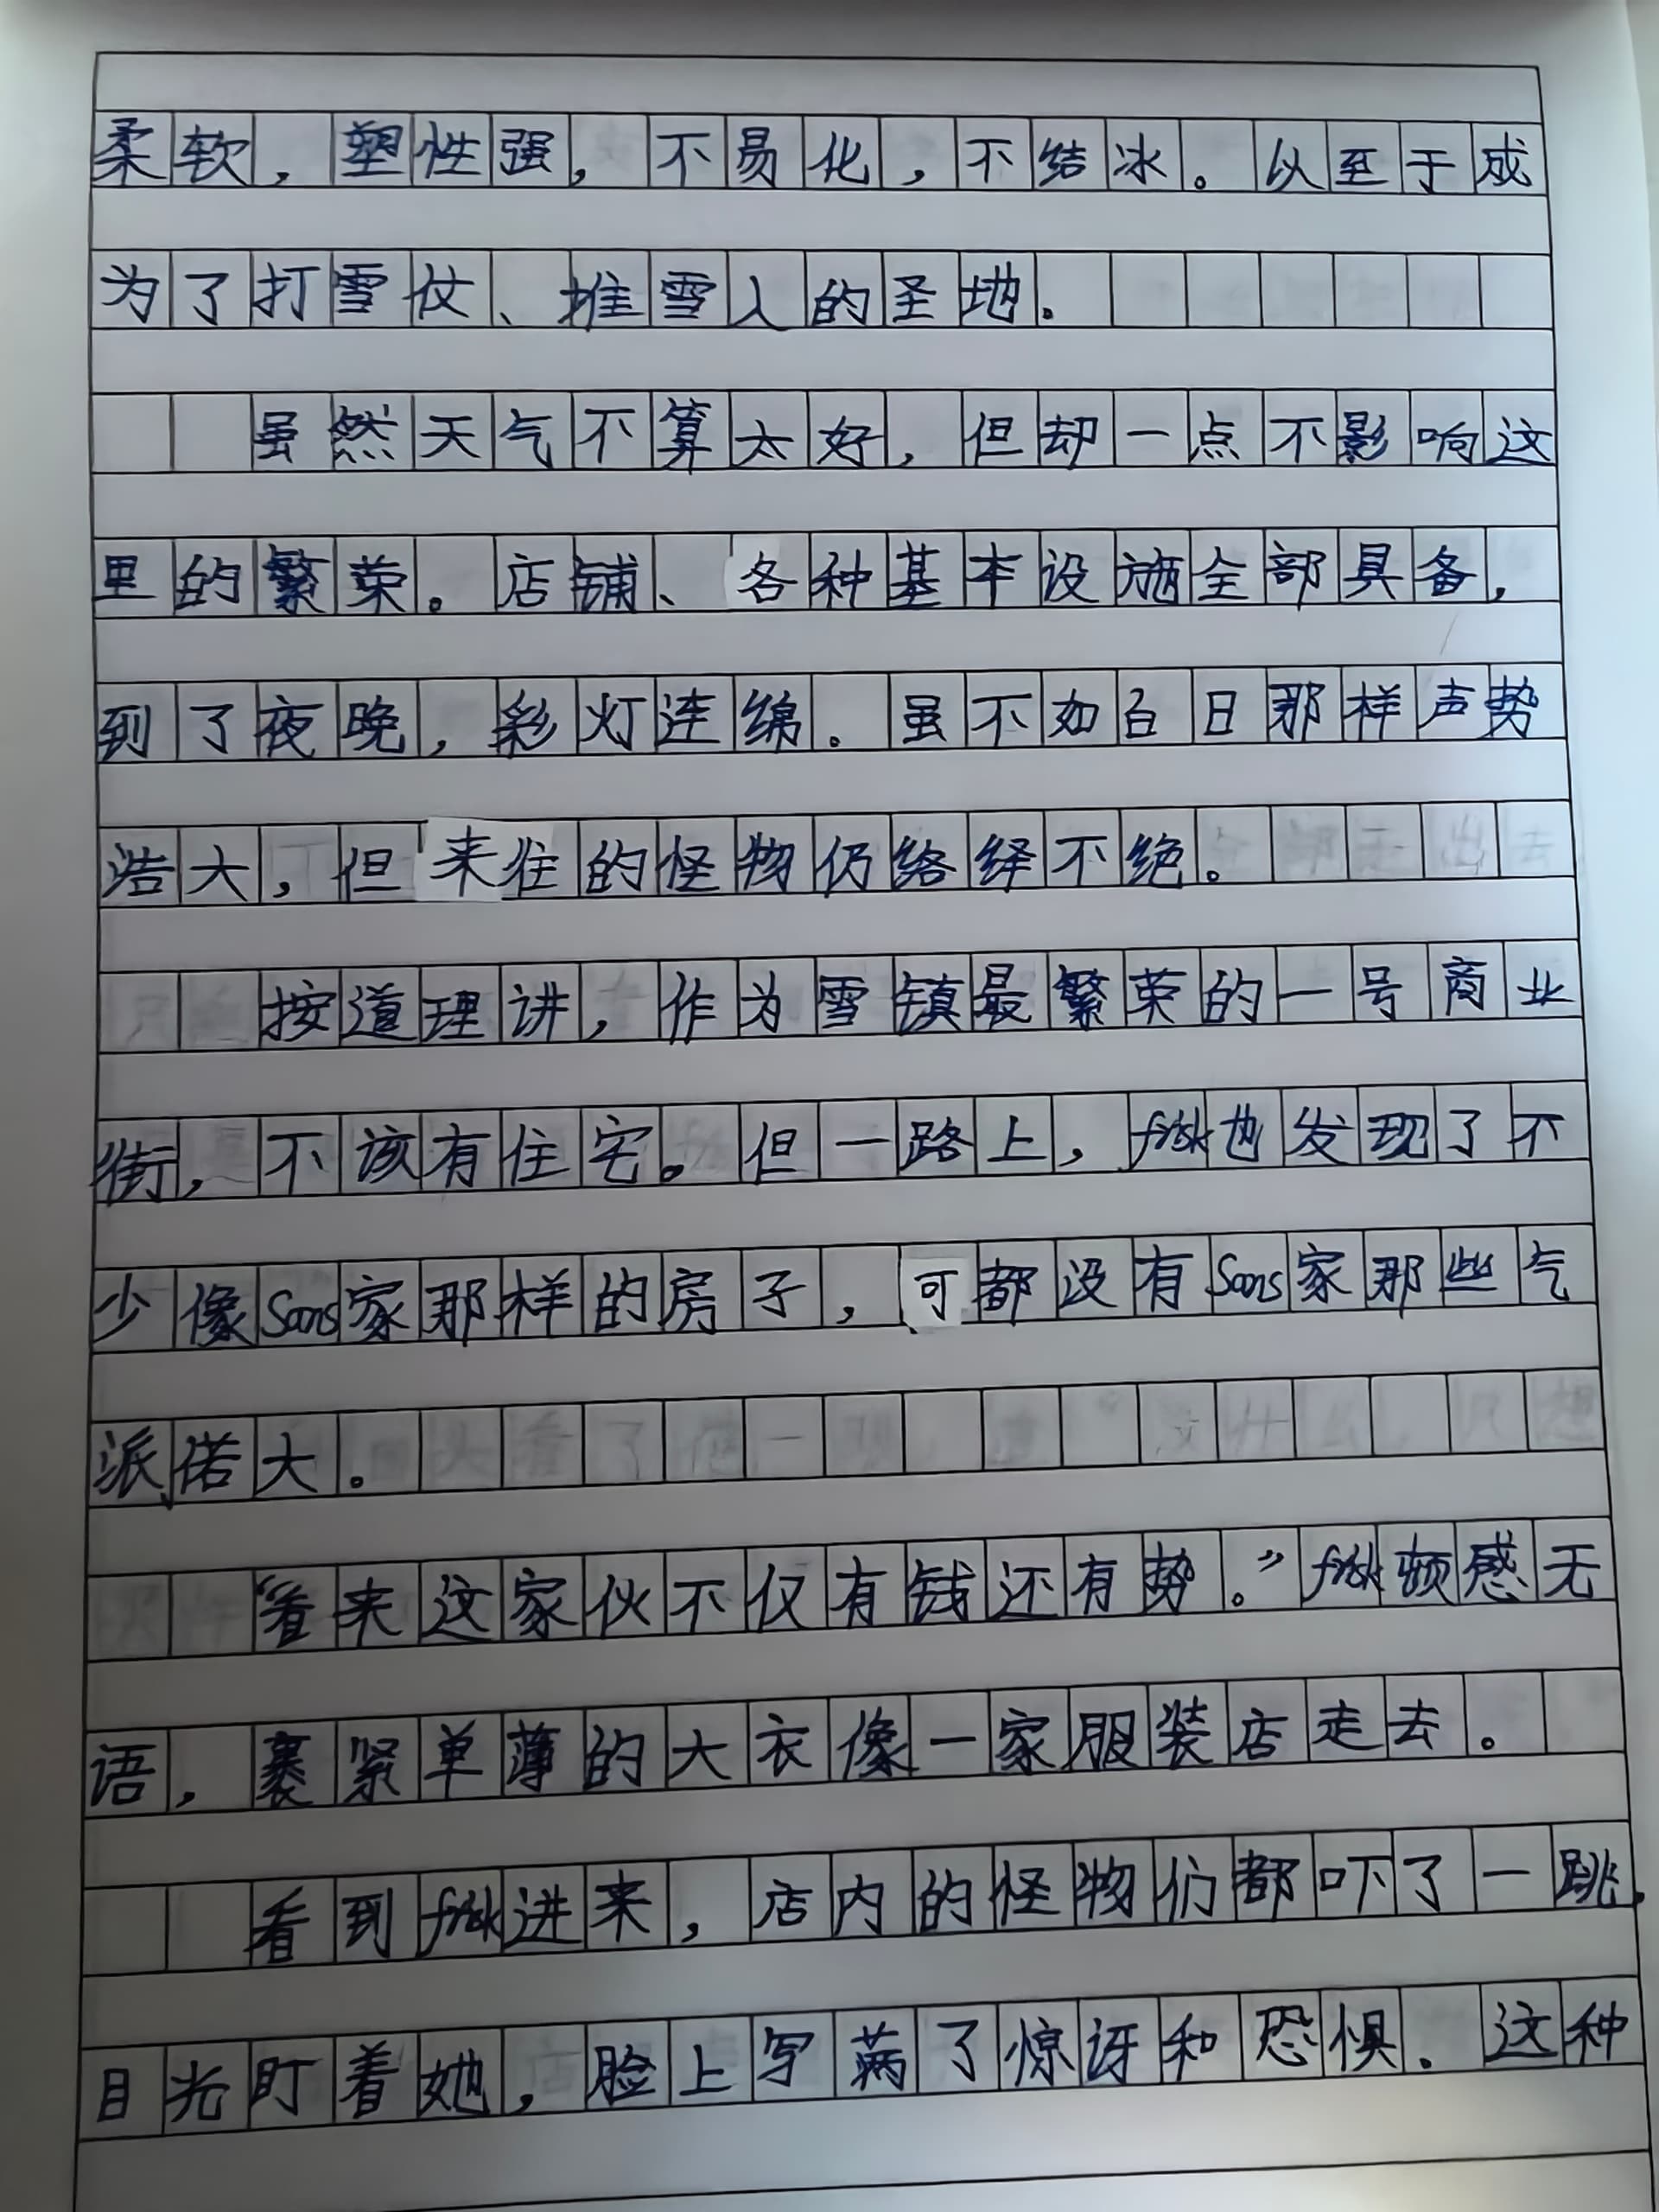 柔软，塑性强，不易化，不结冰。以至于成
为了打雪仗、堆雪人的圣地。
虽然天气不算太好，但却一点不影响这
里的繁荣。店铺、各种基本设施全部具备，
到了夜晚，彩灯连绵。虽不如白日那样声势
浩大，但来往的怪物仍络绎不绝。
按道理讲，作为雪镇最繁荣的一号商业
街，不该有住宅。但一路上，frisk也发现了不
少像Sans家那样的房子，可都没有Sans家那些气
派偌大。
“看来这家伙不仅有钱还有势。”frisk顿感无
语，裹紧单薄的大衣像一家服装店走去。
看到frisk进来，店内的怪物们都吓了一跳，
目光盯着她，脸上写满了惊讶和恐惧。这种